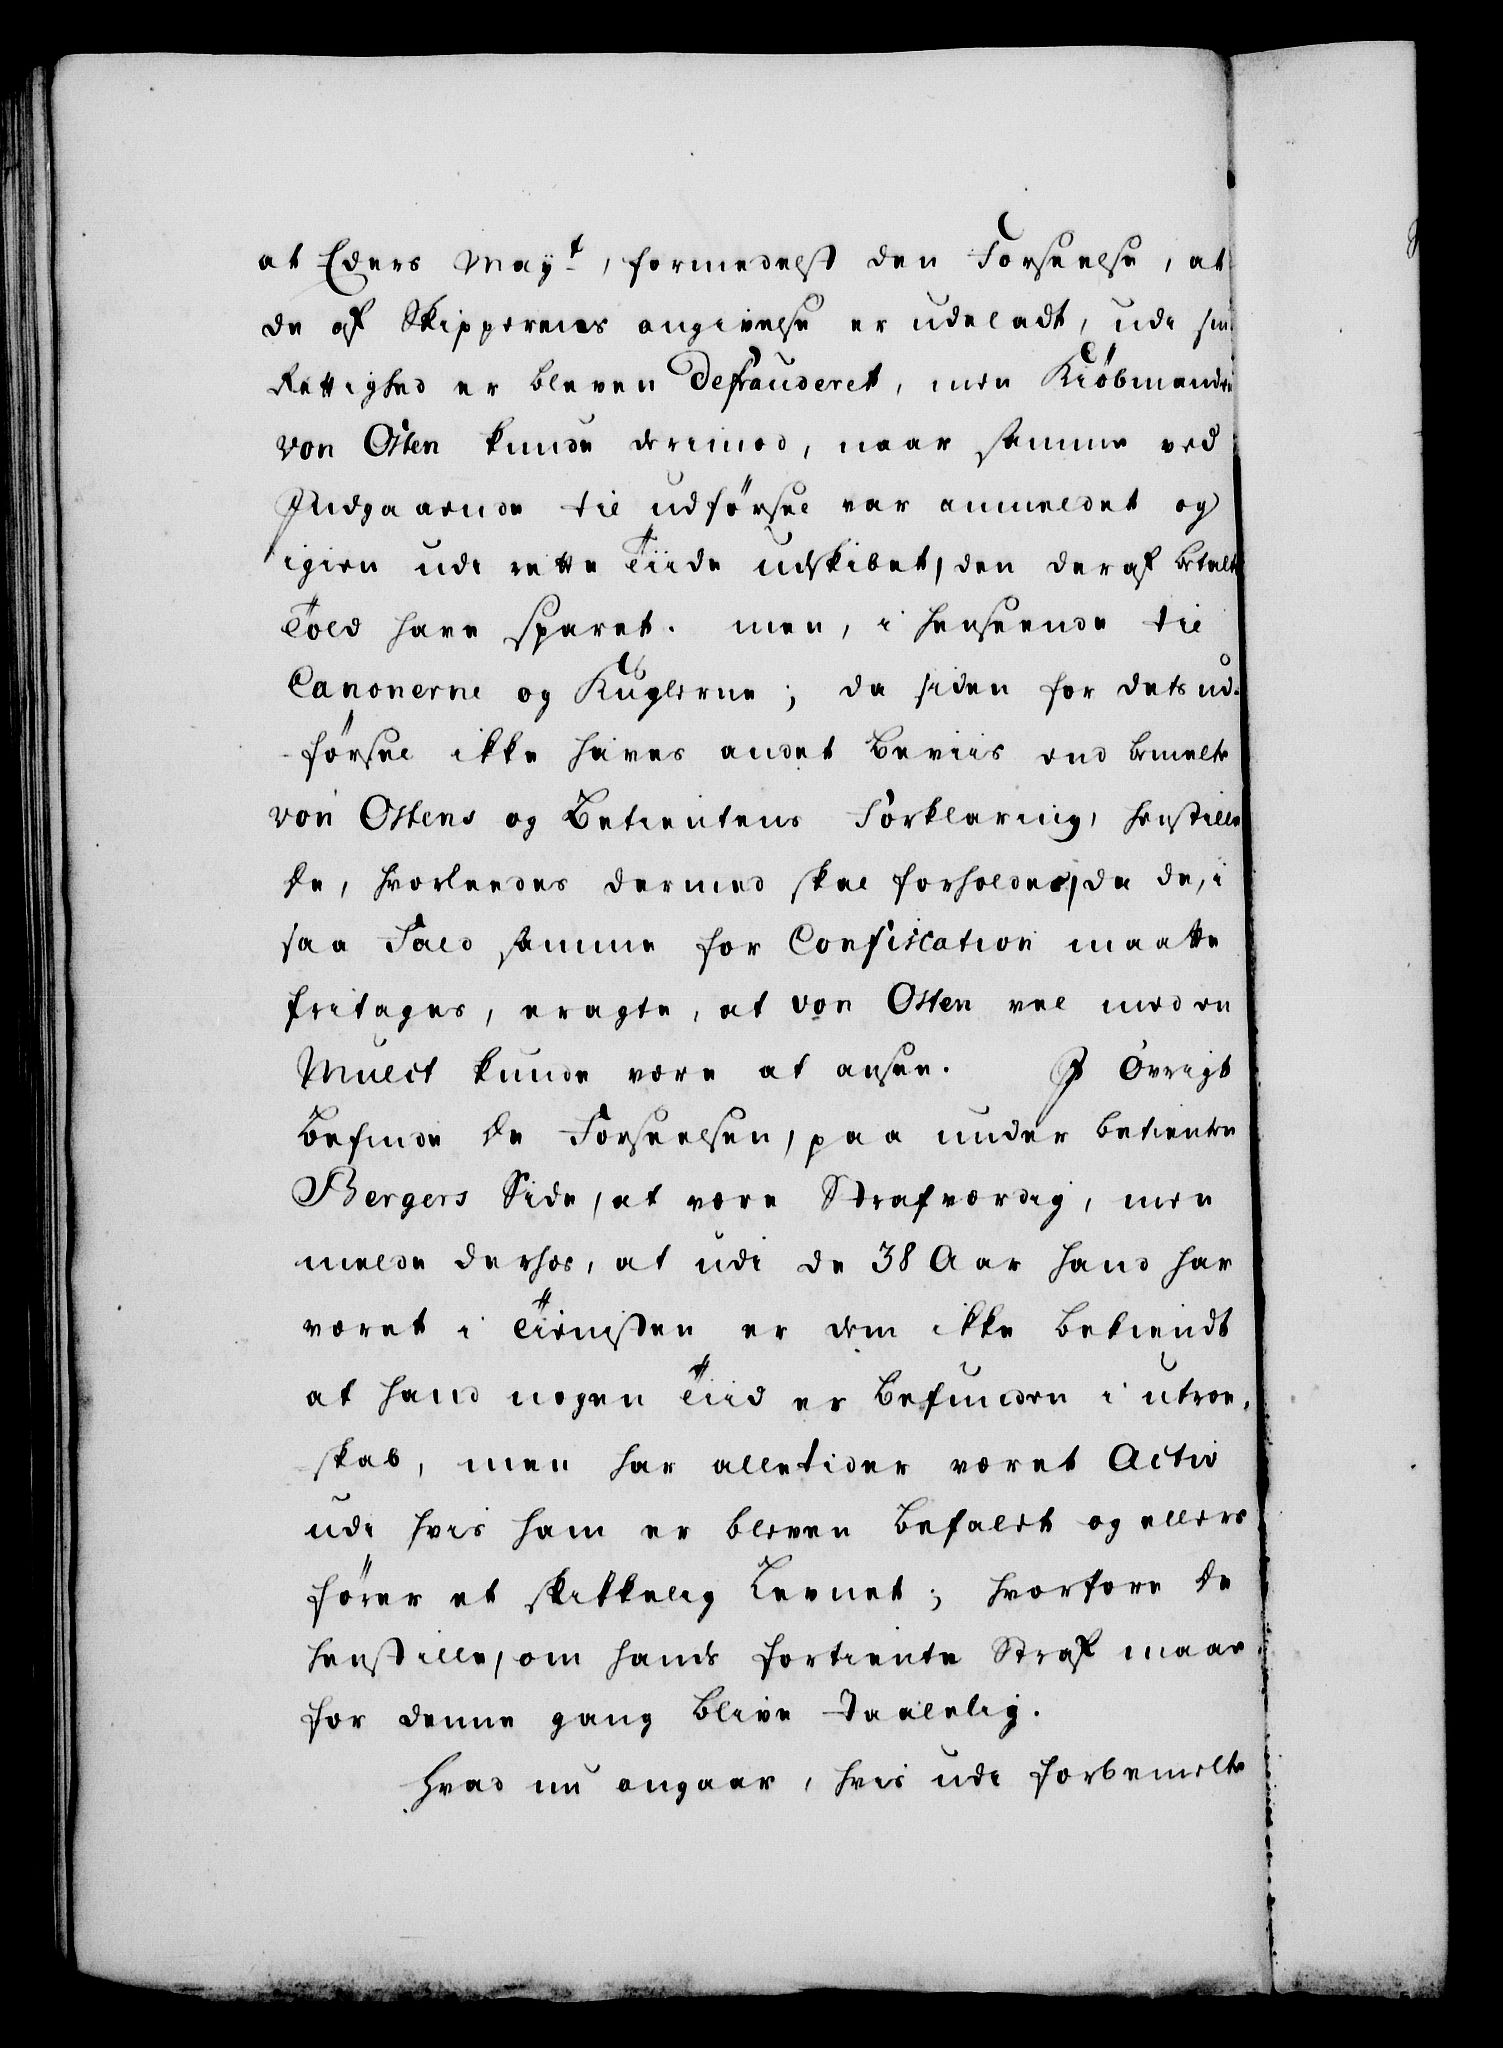 at Eders Mayt, formedelst den Forseelse, at
de af Skippernes angivelse er udeladt, udi sin
Rettighed er bleven Defrauderet, men Kiöbmanden
von Osten kunde derimod, naar samme ved
Indgaaende til udførsel var anmeldet og
igien udi rette Tiide udskibet, den deraf betalte
Told have sparet. men, i henseende til
Canonerne og Kuglerne; da siden for dets ud-
førsel ikke haves andet beviis end bemelte
von Ostens og Betientens Forklaring, henstille
de, hvorledes dermed skal forholdes, da de, i
saa Fald samme for Confiscation maatte
fritages, eragte, at von Osten vel med en
Mulct kunde være at ansee. I Øvrigt
befinde de Forseelsen, paa under betiente
Bergers Side, at være Strafværdig, men
melde derhos, at udi de 38 Aar hand har
været i Tienisten er dem ikke bekiendt
at hand nogen Tiid er befunden i utroe-
skab, men har alletider været Activ
udi hvis ham er bleven befalet og ellers
fører et skikkelig Levnet; hvorfore de
henstille, om hands fortiente Straf maae
for denne gang blive taalelig.
Hvad nu angaar, hvis udi forbemelte